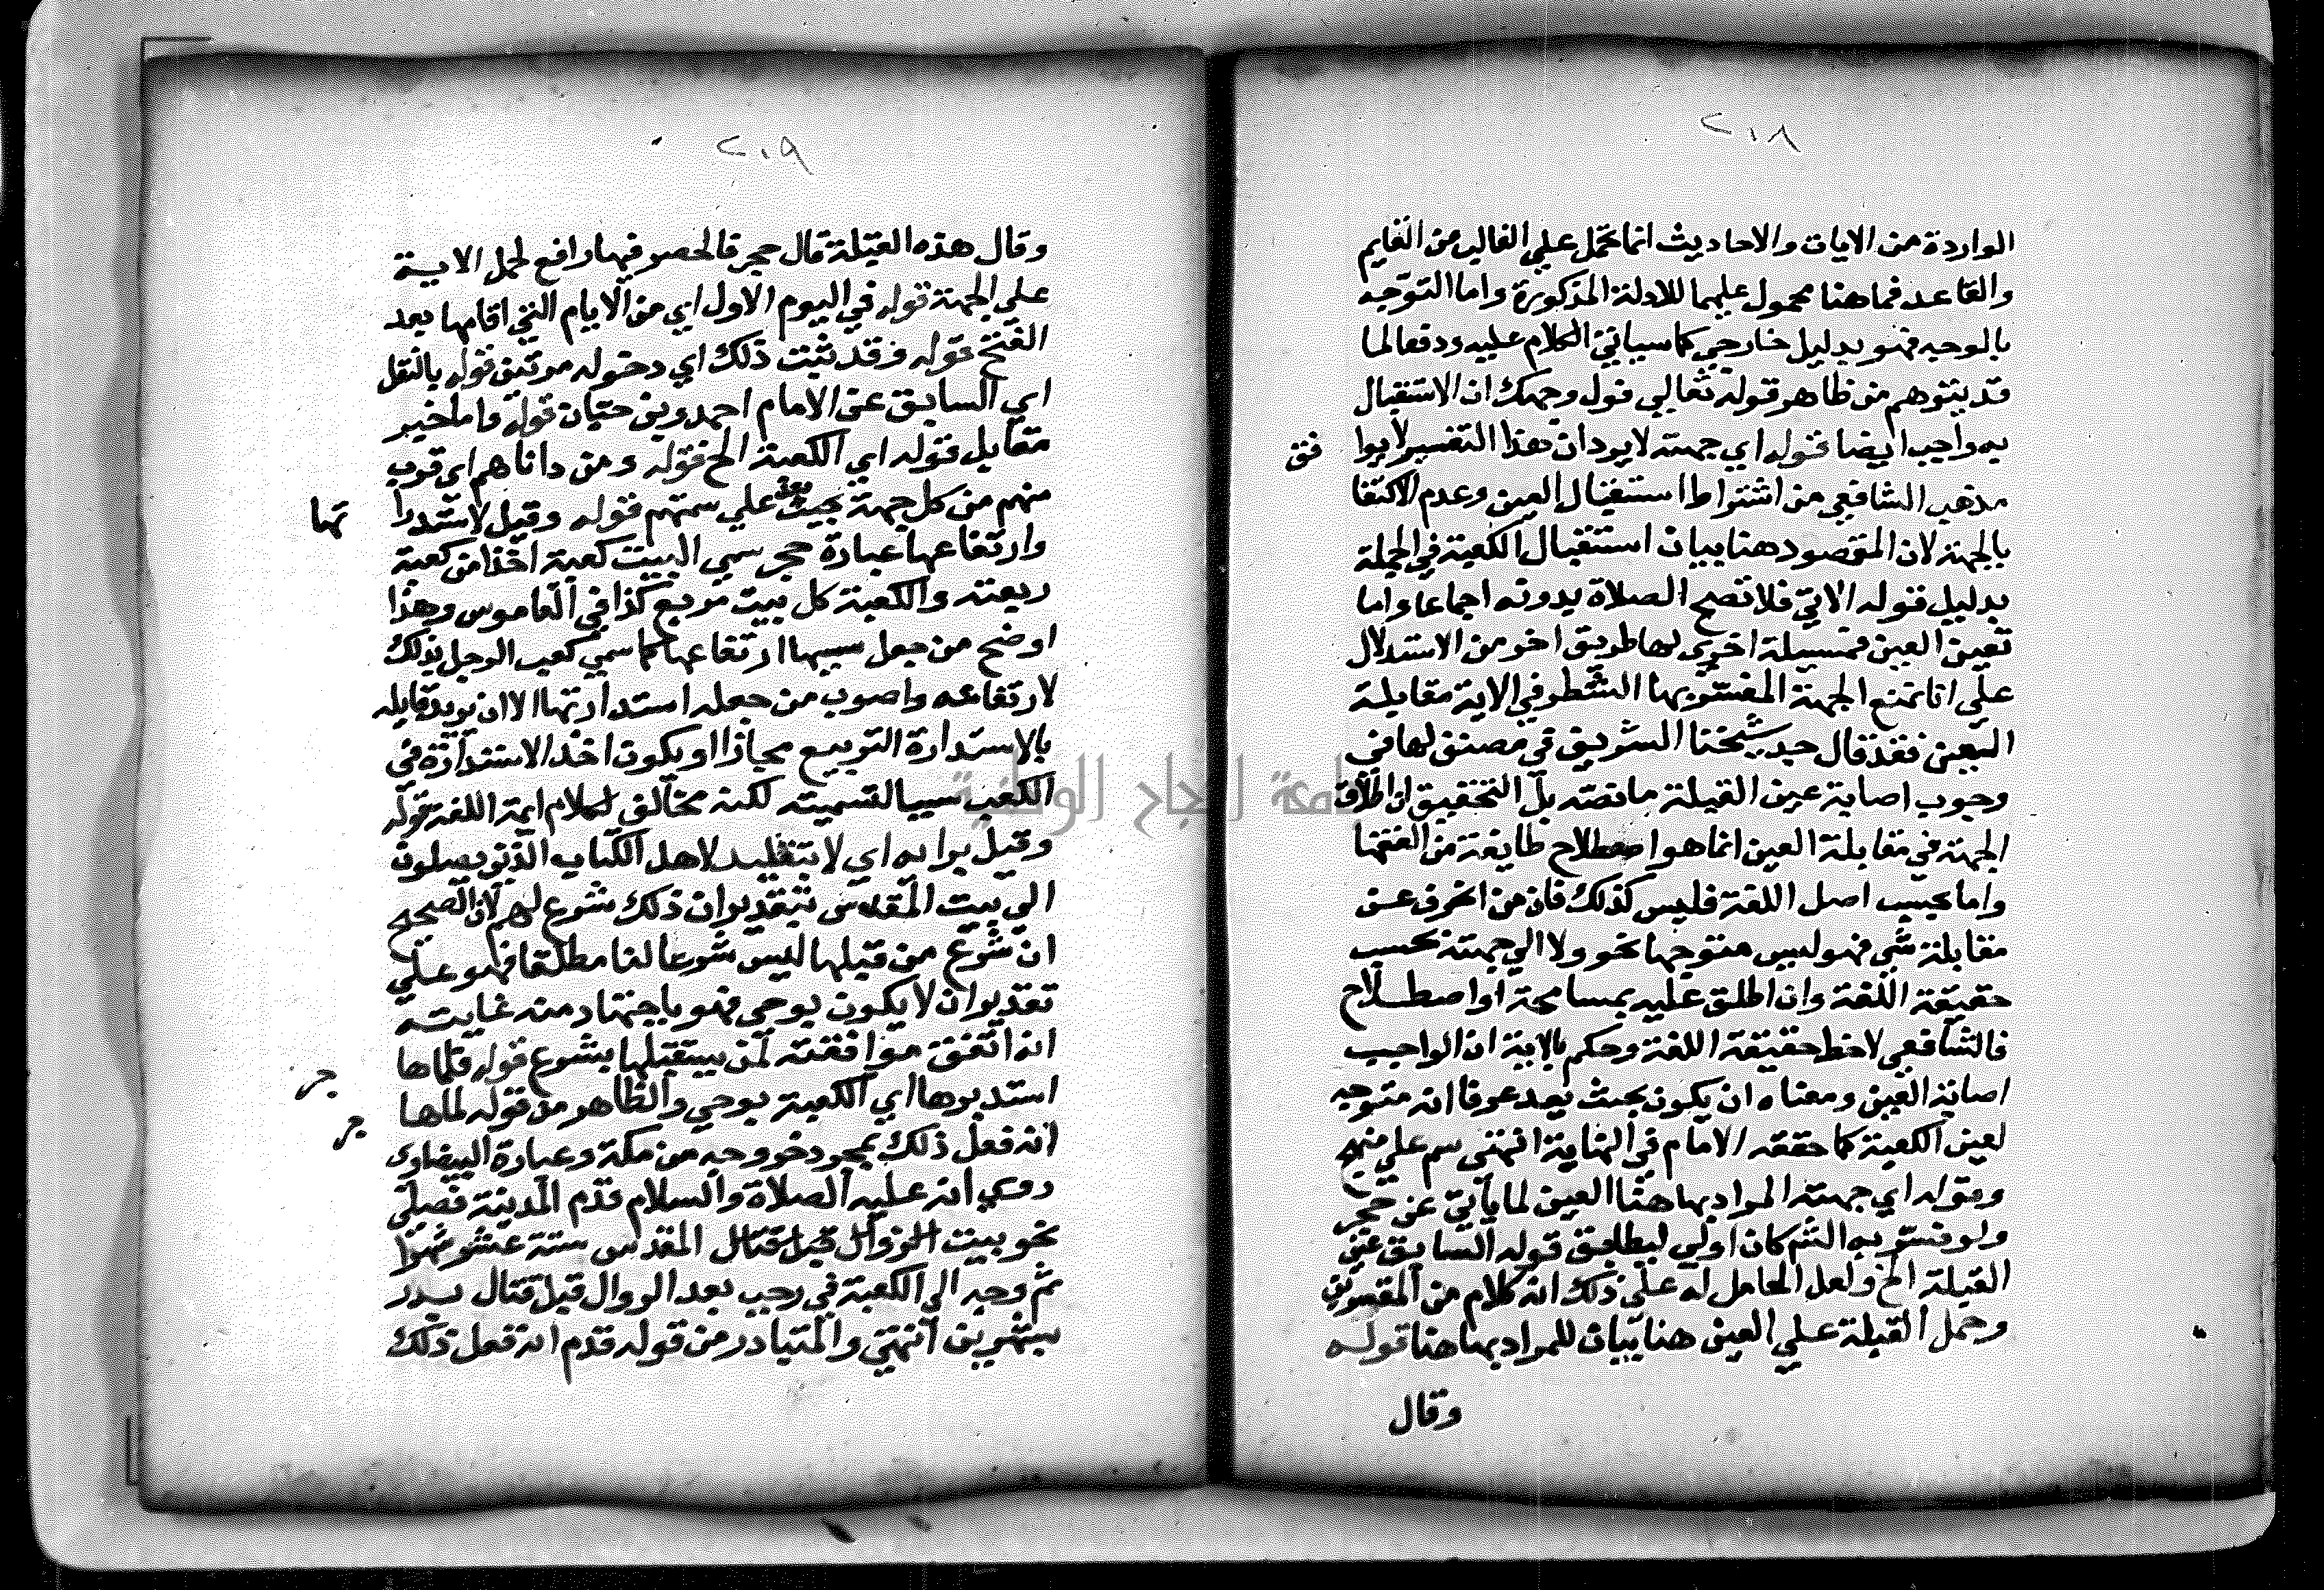 ٢٠٨
الواردة من الايات والاحاديث انما تحمل علي الغالب من القايم
والقاعد فما هنا محمول عليهما للادلة المذكورة واما التوجيه
بالوجه فهو بدليل خارجي كما سياتي الكلام عليه ودفعا لما
قد يتوهم من ظاهر قوله تعالي فول وجهك ان الاستقبال
به واجب ايضا قوله اي جهته لا يرد ان هذا التفسير لا يوا
فق
مذهب الشافعي من اشتراط استقبال العين وعدم الاكتفا
بالجهة لان المقصود هنا بيان استقبال الكعبة في الجملة
بدليل قوله الاتي فلا تصح الصلاة بدونه اجماعا واما
تعين العين فمسيلة اخري لها طريق اخر من الاستدلال
علي انا نمنع الجهة المفسر بها الشطر في الاية مقابلة
العين فقد قال جد شيخنا الشريف في مصنف لها في
وجوب اصابة عين القبلة ما نصه بل التحقيق ان اطلاق
الجهة في مقابلة العين انما هو اصطلاح طايفة من الفقها
واما بحسب اصل اللغة فليس كذلك فان من انحرف عن
مقابلة شي فهو ليس متوجها نحو ولا الي جهته بحسب
حقيقة اللغة وان اطلق عليه بمسامحة او اصطلاح
فالشافعي لاحظ حقيقة اللغة وحكم بالاية ان الواجب
اصابة العين ومعناه ان يكون بحيث يعد عرفا انه متوجه
لعين الكعبة كما حققه الامام في النهاية انتهي سم علي منهج
وقوله اي جهته المراد بها هنا العين لما ياتي عن حجر
ولو فسر به الشم كان اولي ليطابق قوله السابق عين
القبلة الخ ولعل الحامل له علي ذلك انه كلام من المفسرين
وحمل القبلة علي العين هنا بيان للمراد بها هنا قوله
وقال
٢٠٩
وقال هذه القبلة قال حجر فالحصر فيها رافع لحمل الاية
علي الجهة قوله في اليوم الاول اي من الايام التي اقامها بعد
الفتح قوله فقد ثبت ذلك اي دخوله مرتين قوله بالنقل
اي السابق عن الامام احمد وبن حبان قوله واما خبر
مقابل قوله اي الكعبة الخ قوله ومن داناهم اي قرب
منهم من كل جهة بحيث يعد علي سمتهم قوله وقيل لاستدرا
تها
وارتفاعها عبارة حجر سمي البيت كعبة اخذا من كعبة
ربعته والكعبة كل بيت مربع كذا في القاموس وهذا
اوضح من جعل سببها ارتفاعها كما سمي كعب الرجل بذلك
لارتفاعه واصوب من جعله استدارتها الا ان يريد قايله
بالاستدارة التربيع مجازا او يكون اخذ الاستدارة في
الكعب سببا لتسميته لكنه مخالف لكلام ايمة اللغة قوله
وقيل برايه اي لا بتقليد لاهل الكتاب الذين يصلون
الي بيت المقدس بتقدير ان ذلك شرع لهم لان الصحيح
ان شرع من قبلها ليس شرعا لنا مطلقا فهو علي
تقدير ان لا يكون بوحي فهو باجتهاد منه غايته
انه اتفق موافقته لمن يستقبلها بشرع قوله فلما ها
جر
استدبرها اي الكعبة بوحي والظاهر من قوله لما ها
جر
انه فعل ذلك بمجرد خروجه من مكة وعبارة البيضاوي
روي انه عليه الصلاة والسلام قدم المدينة فصلي
نحو بيت الزوال قبل قتال المقدس ستة عشر شهرا
ثم وجه الي الكعبة في رجب بعد الزوال قبل قتال بدر
بشهرين انتهي والمتبادر من قوله قدم انه فعل ذلك
جامعة النجاح الوطنية